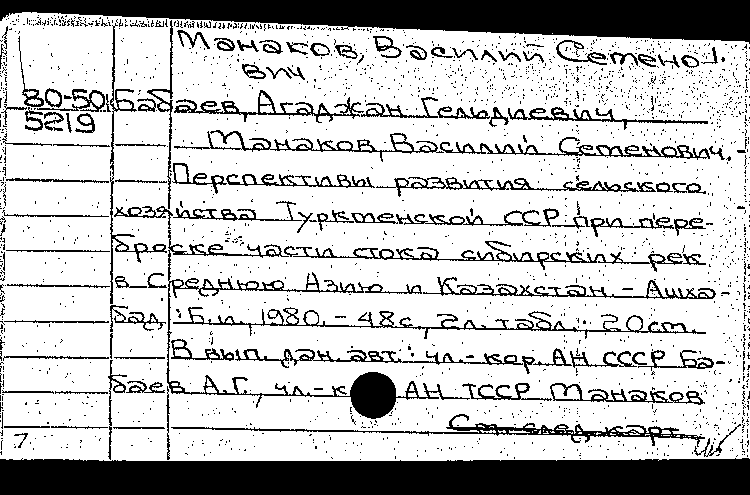 Манаков, Василий Семено
вич.
80-50 Бабаев, Агаджан Гельдиевич,
5219
Манаков, Василий Семенович.
Перспективы развития сельского
хозяйства Туркменской ССР при пере-
броске части стока сибирских рек
в Среднюю Азию и Казахстан. - Ашха-
бад, : Б.и., 1980. - 48 с., 2 л. табл.; 20 см.
В вып. дан. авт.: чл.-кор. АН СССР Ба-
баев А.Г., чл.-к АН ТССР Манаков
См. след. карт.
7